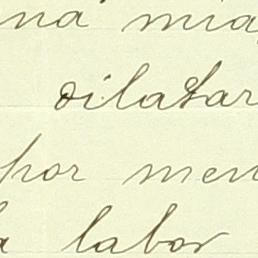 na mia
dilatar
por men
a labor